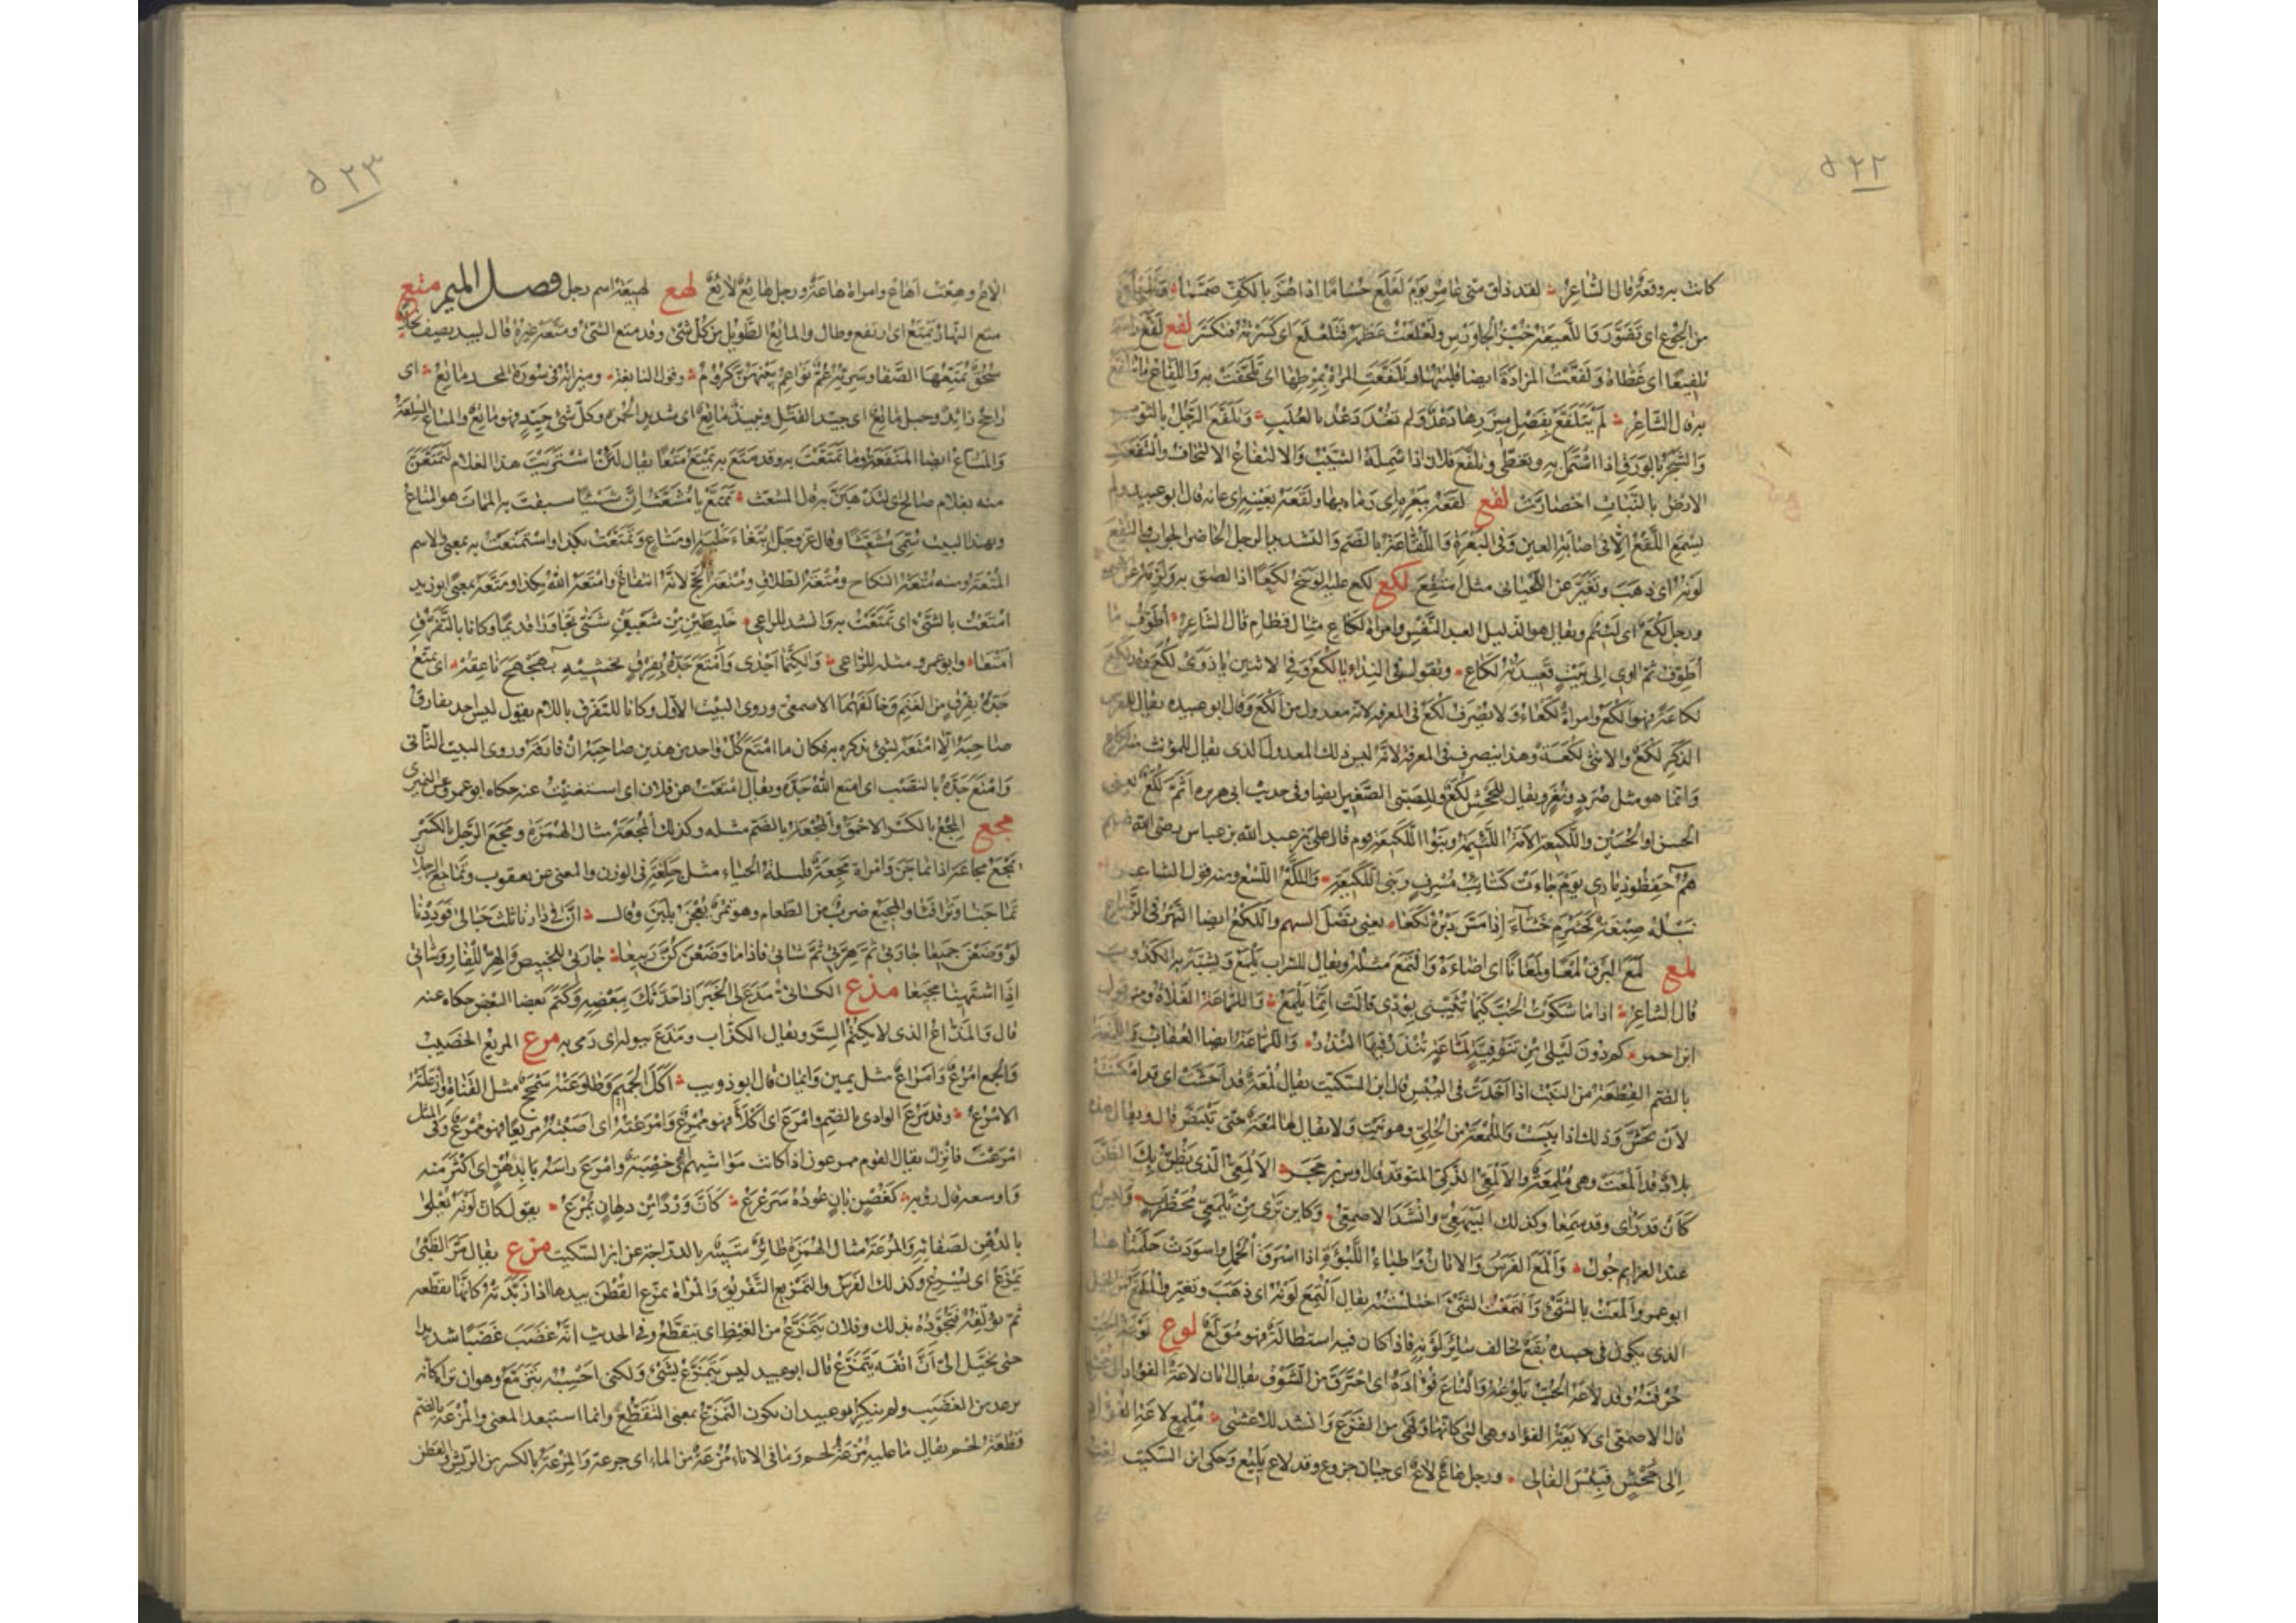 ٥٢٢
كانت به وقعة قال الشاعر لقد ذاق منى عامر يوم لعلع حساما اذا ما هز بالكف صمما وتلعلع
من الجوع اى تضور واللعيعة خبز الجاورس ولعلعت عظمه فتلعلع اى كسرته فتكسر لفع لفع راسه
تلفيعا اى غطاه ولفعت المزادة ايضا قلبتها وتلفعت المراة بمرطها اى تلحفت به واللفاع ما يتلفع
به قال الشاعر لم يتلفع بفضل ميزرها دعد ولم تغذ دعد بالعلب وتلفع الرجل بالثوب
والشجر بالورق اذا اشتمل به وتغطى وتلفع فلان اذا شمله الشيب والالتفاع الالتحاف والتفعت
الارض بالنبات اخضارت لقع لقعه ببعرة اى رماه بها ولقعه بعينه اى عانه قال ابو عبيد ولم
يسمع اللقع الا فى اصابة العين وفى البعرة واللقاعة بالضم والتشديد الرجل الحاضر الجواب والتقع
لونه اى ذهب وتغير عن اللحيانى مثل امتقع لكع لكع عليه الوسخ لكعا اذا لصق به ولزمه عن
ورجل لكع اى لئيم ويقال هو الذليل العبد النفس وامراة لكاع مثال قطام قال الشاعر اطوف ما
اطوف ثم اوى الى بيت قعيدته لكاع وتقول فى النداء يا لكع وفى الاثنين يا ذوى لكع وقد لكع
لكاعة فهو الكع وامراة لكعاء ولا يصرف لكع فى المعرفة لانه معدول من الكع وقال ابو عبيدة يقال للفرس
الذكر لكع والانثى لكعة وهذا ينصرف فى المعرفة لانه ليس ذلك المعدول الذى يقال للمؤنث منه لكاع
وانما هو مثل صرد ونغر ويقال للجحش لكع وللصبى الصغير ايضا وفى حديث ابى هريرة اثم لكع يعنى
الحسن او الحسين واللكيعة الامة اللئيمة وبنوا اللكيعة قوم قال على بن عبد الله بن عباس رضى الله عنهم
هم حفظوا ذمارى يوم جاءت كتائب مسرف وبنى اللكيعه واللكع اللسع ومنه قول الشاعر
نبله صيغة كخشرم خشاء اذا مس دبره لكعا يعنى نصل السهم واللكع ايضا النهز فى الرضاع
لمع لمع البرق لمعا ولمعانا اى اضاء والتمع مثله ويقال للسراب يلمع ويشبه به الكذوب
قال الشاعر اذا ما شكوت الحب كيما تثيبنى بودى قالت انما انت يلمع واللماعة الفلاة ومنه قول
ابن احمر كم دون ليلى من تنوفية لماعة تنذر فيها النذر واللماعة ايضا العقاب واللمعة
بالضم القطعة من النبت اذا اخذت فى اليبس قال ابن السكيت يقال لمعة قد احشت اى قد امكنت
لان تحش وذلك اذا يبست واللمعة من الحلى وهو نبت ولا يقال لها لمعة حتى تبيض قال ويقال هذه
بلاد قد المعت وهى ملمعة والالمعى الذكى المتوقد قال اوس بن حجر الالمعى الذى يظن بك الظن
كان قد راى وقد سمعا وكذلك اليلمعى وانشد الاصمعى وكاين ترى من يلمعى محظرب وليس له
عند العزايم جول والمع الفرس والاتان واطباء اللبؤة اذا اشرق للحمل واسودت حلمتاها
ابو عمرو المعت بالشئ والتمعت الشئ اختلسته يقال التمع لونه اى ذهب وتغير والملمع من الخيل
الذى يكون فى جسده بقع تخالف سائر لونه فاذا كان فيه استطالة فهو مولع لوع لوعة الحب
حرقته وقد لاعه الحب يلوعه والتاع فؤاده اى احترق من الشوق يقال اتان لاعة الفؤاد الى جحشها
قال الاصمعى اى لائعة الفؤاد وهى التى كانها ولهى من الفزع وانشد للاعشى ملمع لاعة الفؤاد
الى جحش فبئس الفالى ورجل هاع لاع اى جبان جزوع وقد لاع يليع وحكى ابن السكيت لعت
٥٢٣
الاع وهعت اهاع وامراة هاعة ورجل هائع لائع لهع لهيعة اسم رجل فصل الميم متع
متع النهار يمتع اى ارتفع وطال والماتع الطويل من كل شئ وقد متع الشئ ومتعه غيره قال لبيد يصف نخلا
سحق يمتعها الصفا وسريه عم نواعم بينهن كروم وقول النابغة وميزانه فى سورة المجد ماتع اى
راجح زائد وحبل ماتع اى جيد الفتل ونبيذ ماتع اى شديد الحمرة وكل شئ جيد فهو ماتع والمتاع السلعة
والمتاع ايضا المنفعة وما تمتعت به وقد متع به يمتع متعا يقال لئن اشتريت هذا الغلام لتمتعن
منه بغلام صالح اى لتذهبن به قال المشعث تمتع يا مشعث ان شيئا سبقت به الممات هو المتاع
وبهذا البيت سمى مشعثا وقال عز وجل ابتغاء حلية او متاع وتمتعت بكذا واستمتعت به بمعنى والاسم
المتعة ومنه متعة النكاح ومتعة الطلاق ومتعة الحج لانه انتفاع وامتعه الله بكذا ومتعه بمعنى ابو زيد
امتعت بالشئ اى تمتعت به وانشد للراعى خليطين من شعبين شتى تجاورا قديما وكانا بالتفرق
امتعا وابو عمرو مثله للراعى ولكنما اجدى وامتع جده بفرق يخشيه بهجهج ناعقه اى تمتع
جده بفرق من الغنم وخالفهما الاصمعى وروى البيت الاول وكانا للتفرق باللام يقول ليس احد يفارق
صاحبه الا امتعه بشئ يذكره به فكان ما امتع كل واحد من هذين صاحبه ان فارقه وروى البيت الثانى
وامتع جده بالنصب اى امتع الله جده ويقال امتعت عن فلان اى استغنيت عنه حكاه ابو عمرو عن النميرى
مجع المجع بالكسر الاحمق والمجعة بالضم مثله وكذلك المجعة مثال الهمزة ومجع الرجل بالكسر
يمجع مجاعة اذا تماجن وامراة مجعة قليلة الحياء مثل جلعة فى الوزن والمعنى عن يعقوب وتماجع الرجلان
تماجنا وترافثا والمجيع ضرب من الطعام وهو تمر يعجن بلبن وقال ان فى دارنا ثلث حبالى فوددنا
لو وضعن جميعا جارتى ثم هرتى ثم شاتى فاذا ما وضعن كن ربيعا جارتى للخبيص والهر للفار وشاتى
اذا اشتهينا مجيعا مذع الكسائى مذع لى الخبر اذا حدثك ببعضه وكتم بعضا البعض حكاه عنه
قال والمذاع الذى لا يكتم السر ويقال الكذاب ومذع ببوله اى رمى به مرع المريع الخصيب
والجمع امرع وامراع مثل يمين وايمان قال ابو ذويب اكل الجميم وطاوعته سمحج مثل القناة وازعلته
الامرع وقد مرع الوادى بالضم وامرع اى اكلأ فهو ممرع وامرعته اى اصبته مريعا فهو ممرع وفى المثل
امرعت فانزل يقال القوم ممرعون اذا كانت مواشيهم فى خصب وامرع راسه بالدهن اى اكثر منه
واوسعه قال روبة كغصن بان عوده سرعرع كان وردا من دهان يمرع يقول كان لونه يعلى
بالدهن لصفائه والمرعة مثال الهمزة طائر شبيه بالدراجة عن ابن السكيت مزع يقال مر الظبى
يمزع اى يسرع وكذلك الفرس والتمزيع التفريق والمراة تمزع القطن بيدها اذا زبدته كانها تقطعه
ثم تؤلفه فتجوده بذلك وفلان يتمزع من الغيظ اى يتقطع وفى الحديث انه غضب غضبا شديدا
حتى تخيل الى ان انفه يتمزع قال ابو عبيد ليس يتمزع بشئ ولكنى احسبه يترمع وهو ان تراه كانه
يرعد من الغضب ولم ينكر ابو عبيد ان يكون التمزع بمعنى التقطع وانما استبعد المعنى والمزعة بالضم
قطعة لحم يقال ما عليه مزعة لحم وما فى الاناء مزعة من الماء اى جرعة والمزعة بالكسر من الريش والقطن